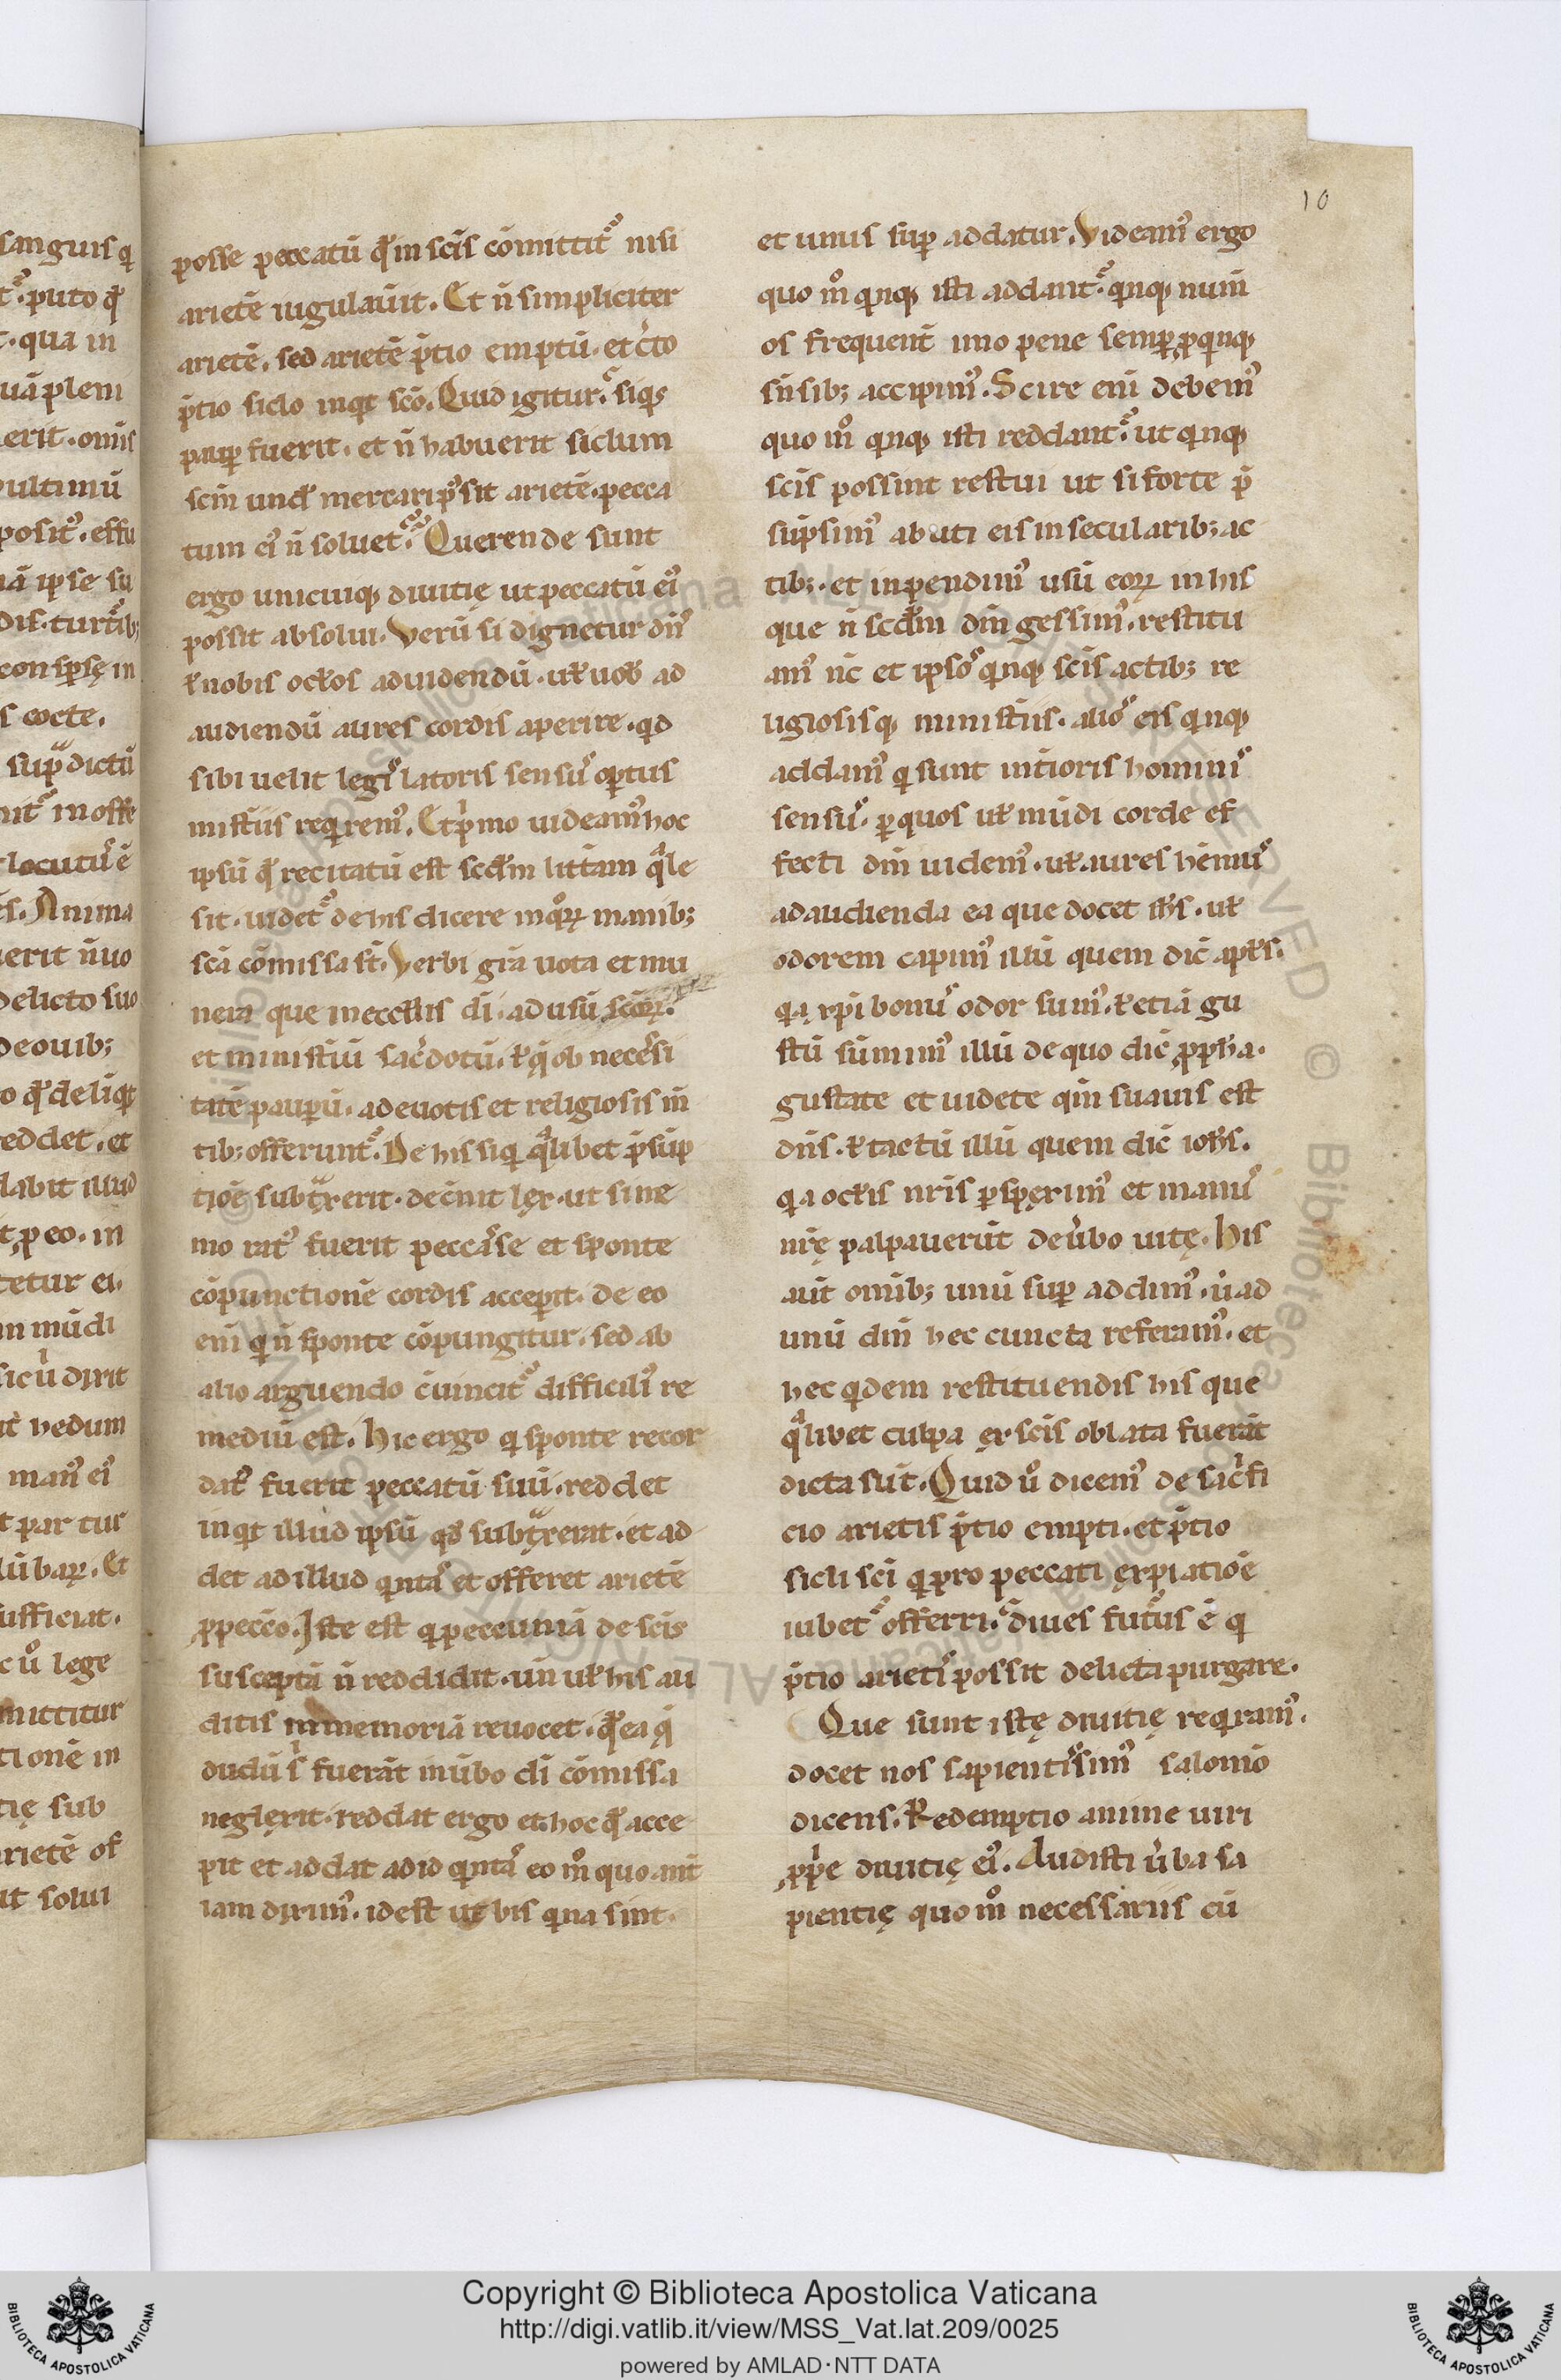 sanguis q
puto qd̄
qua in
uā pleni
erit. om̄is
ultimū
posit᷒. effu
nā ipse su
consp̄sę in
s cocte.
sup̄ dictū
in offe
locutu᷒ ē
Anima
uerit n̄ uo
delicto suo
de ouib;
o qd̄ deliq̄t
reddet. et
labit illud
ꝓ eo. in
tetur ei.
in mūdi
sicū dixit
hedum
man᷒ ei᷒
par tur
lūbaꝝ. Et
sufficiat.
c ů lege
mittitur
tionē in
tię sub
arietē of
ut solui
posse peccatū qd̄ in sc̄is cōmittit᷑ nisi
arietē iugulauit. Et n̄ simpliciter
arietē. sed arietē p̄tio emptū. et c̄to
p̄tio siclo inq̄t sc̄o. Quid igitur. siq̄s
paup̄ fuerit. et n̄ habuerit siclum
sc̄m und̄ mercari p̄sit arietē. pecca
tum ei᷒ n̄ soluet᷑. Querende sunt
ergo unicuiq; diuitię ut peccatū ei᷒
possit absolui. Verū si dignetur dn̄s
ł nobis ocłos ad uidendū. uł uob̄ ad
audiendū aures cordis aperire. qd
sibi uelit legis latoris sensu᷒ optus
mistiis req̄rem᷒. Et p̄mo uideam᷒ hoc
ipsū qd̄ recitatū est scdm̄ litt̄am q̄le
sit. uidet᷑ de his dicere in q̊ꝝ manib;
sc̄a cōmissa st̄. Verbi grā uota et mu
nera que in eccłis di̅. ad usū sc̄oꝝ.
et minist̄iū sac̄dotū. ł q̨ ob nec̄ssi
tatē paup̄ū. a deuotis et religiosis m̄
tib; offerunt᷑. De his siq̄ q̄libet p̄sūp
tiōe subtͣxerit. dec̄nit lex. ut si me
mo rat᷒ fuerit peccasse et sponte
cōpunctionē cordis accep̄it. de eo
eni̅ q̄ n̄ sponte cōpungitur. sed ab
alio arguendo c̄uincit᷑ difficili᷒ re
mediū est. Hic ergo q̄ sponte recor
dat᷒ fuerit peccatū suū. reddet
inq̄t illud ipsū qd̄ subtͣxerat. et ad
det ad illud q̄ntā et offeret arietē
ꝓ pecc̄o. Iste est q̄ peccuniā de sc̄is
susceptā n̄ reddidit. un̄ uł his au
ditis in memoriā reuocet. qd̄ ea q̨
dudū s̄ fuerāt in ūbo di̅ cōmissa
neglexit. reddat ergo et hoc qd̄ acce
pit et addat ad id q̄ntā eo m̊ quo aut̄
iam dixim᷒. id est ut bis q̄na sint.
10
et unus sup̄ addatur. Videam᷒ ergo
quo m̊ q̄nq; isti addant᷑. q̄nq; num̄
os frequent̄ imo pene semp̄ ꝓ q̄nq;
sn̄sib; accipim᷒. Scire eni̅ debem᷒
quo m̊ q̄nq; isti reddant᷑. ut q̄nq;
sc̄is possint restitui ut si forte p̄
sūpsim᷒ abuti eis in secularib; ac
tib;. et inpendim᷒ usū eoꝝ in his
que n̄ scd̄m dm̄ gessim᷒. restitu
am᷒ nc̄ et ipsos q̄nq; sc̄is actib; re
ligiosisq; minist̄iis. alios eis q̄nq;
addam᷒ q̄ sunt int̄ioris hominis
sensu᷒. ꝑ quos uł mūdi corde ef
fecti dm̄ uidem᷒. uł aures hēm᷒
ad audienda ea que docet ih̄s. uł
odorem capim᷒ illū quem dic̄ apłs.
q̄a xp̄i bonu᷒ odor sum᷒. ł etiā gu
stū sūmim᷒ illū de quo dic̄ ꝓph̄a.
gustate et uidete qm̄ suauis est
dn̄s. ł tactū illū quem dic̄ ioh̄s.
q̄a ocłis nr̄is ꝑspexim᷒ et manus
nr̄ę palpauerūt de ūbo uitę. His
aut̄ om̄ib; unū sup̄ addim᷒. ů ad
unū dm̄ hec cuncta referam᷒. et
hec q̄dem restituendis his que
q̄libet culpa ex sc̄is oblata fuerāt
dicta sūt. Quid ů dicem᷒ de sac̄fi
cio arietis p̄tio empti. et p̄tio
sicli sc̄i q̄ pro peccati expiatiōe
iubet᷑ offerri. diues futurus ē q̄
p̄tio arietis possit delicta purgare.
Que sunt istę diuitię req̄ram᷒.
docet nos sapientissim᷒ salomō
dicens. Redemptio anime uiri
ꝓp̄e diuitię ei᷒. Audisti ūba sa
pientię quo m̊ necessariis cū
Copyright © Biblioteca Apostolica Vaticana
http://digi.vatlib.it/view/MSS_Vat.lat.209/0025
powered by AMLAD·NTT DATA
BIBLIOTECA APOSTOLICA VATICANA
BIBLIOTECA APOSTOLICA VATICANA